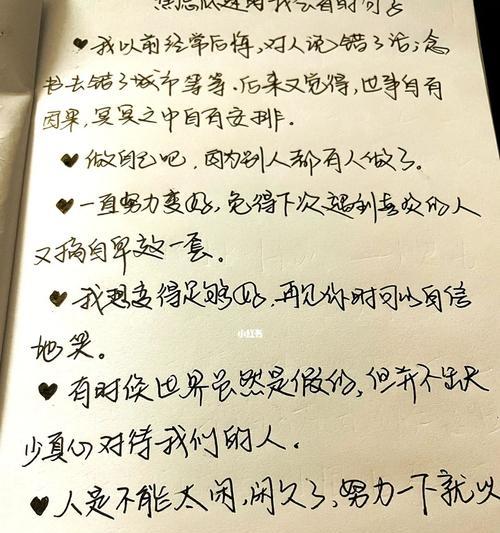 ♥我以前经常后悔,对人说错了话,念
书去错了城市等等.后来又觉得,世事自有
因果,冥冥之中自有安排.
♥做自己吧,因为别人都有人做了.
♥一直努力变好,免得下次遇到喜欢的人
又搞自卑这一套。
♥我想变得足够好,再见你时可以自信
地笑。
小红书
♥有时候世界虽然是假的,但并不缺
少真心对待我们的人.
♥人是不能太闲,闲久了,努力一下就以